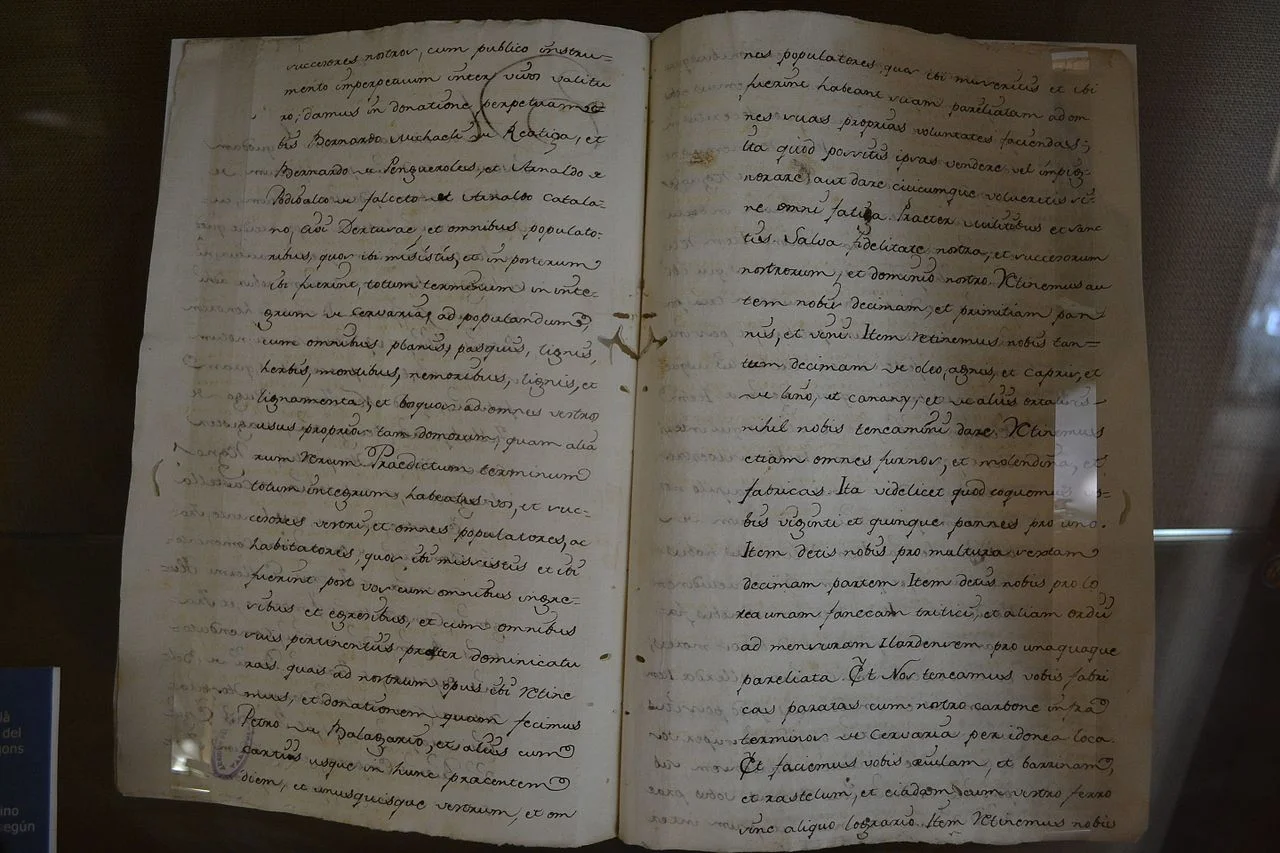 successores nostros, cum publico instru=
mento imperpetuum inter vivos valitu
ro; damus in donatione perpetuam
bis Bernardo Michaeli de Reatiga, et
Bernardo de Penguerolas, et Arnaldo de
Podibalco de falceto et Arnaldo Catala-
no, Derturae, et omnibus populato-
ribus, quos ibi misistis, et in posterum
ibi fuerint, totum terminum in inte-
grum de Cervaria, ad populandum,
cum omnibus planis, pasquis, lignis,
herbis, montibus, nemoribus, lignis, et
lignamenta, et bosquos ad omnes vestros
usus proprios tam domorum, quam alia
rum rerum. Praedictum terminum
totum integrum habeatis vos, et suc-
cessores vestri, et omnes populatores, ac
habitatores, quos ibi misistis et ibi
fuerint post vos cum omnibus ingre-
sibus et egresibus, et cum omnibus
suis pertinentiis praeter dominicatu
ras quas ad nostrum opus ibi retine
mus, et donationem quam fecimus
Petro de Balagario, et aliis cum
cartis usque in hunc praesentem
diem, et unusquisque vestrum, et om
nes populatores, quos ibi miseritis et ibi
fuerint habeant suam pareliatam ad om
nes suas proprias voluntates faciendas;
Ita quod possitis ipsas vendere vel impig-
norare, aut dare cuicumque volueritis si-
ne omni fatiga. Praeter militibus et sanc
tis. Salva fidelitate nostra, et successorum
nostrorum, et dominio nostro. Retinemus au
tem nobis decimam, et primitiam pan
nis, et veni. Item retinemus nobis tan=
tum decimam de oleo, agnis, et capris, et
de lino, et canany, et de aliis
nihil nobis teneamini dare. Retinemus
etiam omnes furnos, et molendina, et
fabricas. Ita videlicet quod coquemus vo-
bis viginti et quinque pannes pro uno.
Item detis nobis pro multura sextam
decimam partem. Item detis nobis pro lo
rea unam fanecam tritici, et aliam ordii
ad mensuram Ilardensem pro unaquaque
pareliata. Et Nos teneamus vobis fabri
cas paratas cum nostro carbone infra
terminos de Cervaria per idonea loca.
Et faciemus vobis et barrinam,
et rastelum, et eiadem cum vestro ferro
sine aliquo logrario. Item retinemus nobis